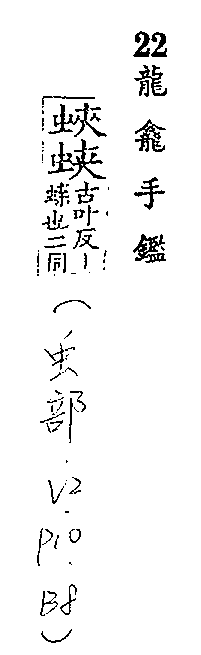 22 龍龕手鑑
蛺蛱古叶反丨
蛺也二同
(虫部.V2.P10.B8)